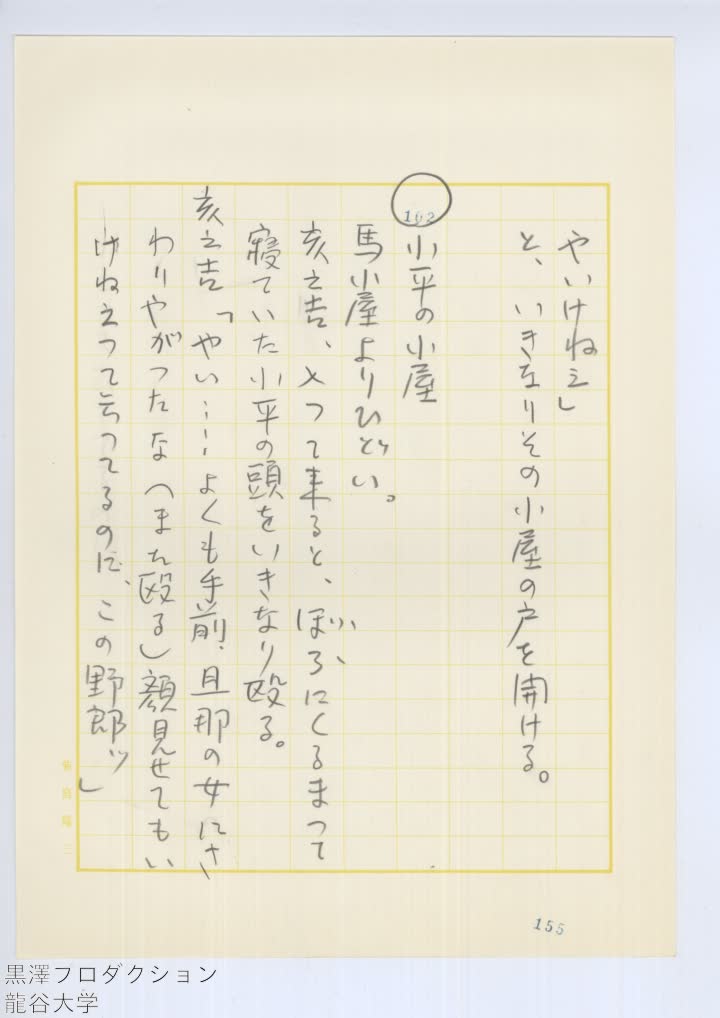 やいけねえ」
と、いきなりその小屋の戸を開ける。
102
小平の小屋
馬小屋よりひどい。
亥之吉、入つて来ると、ぼろにくるまつて
寝ていた小平の頭をいきなり殴る。
亥之吉「やい……よくも手前、旦那の女にさ
わりやがつたな（また殴る）顔見せてもい
けねえつて云つてるのに、この野郎ッ」
155
黒澤プロダクション
龍谷大学